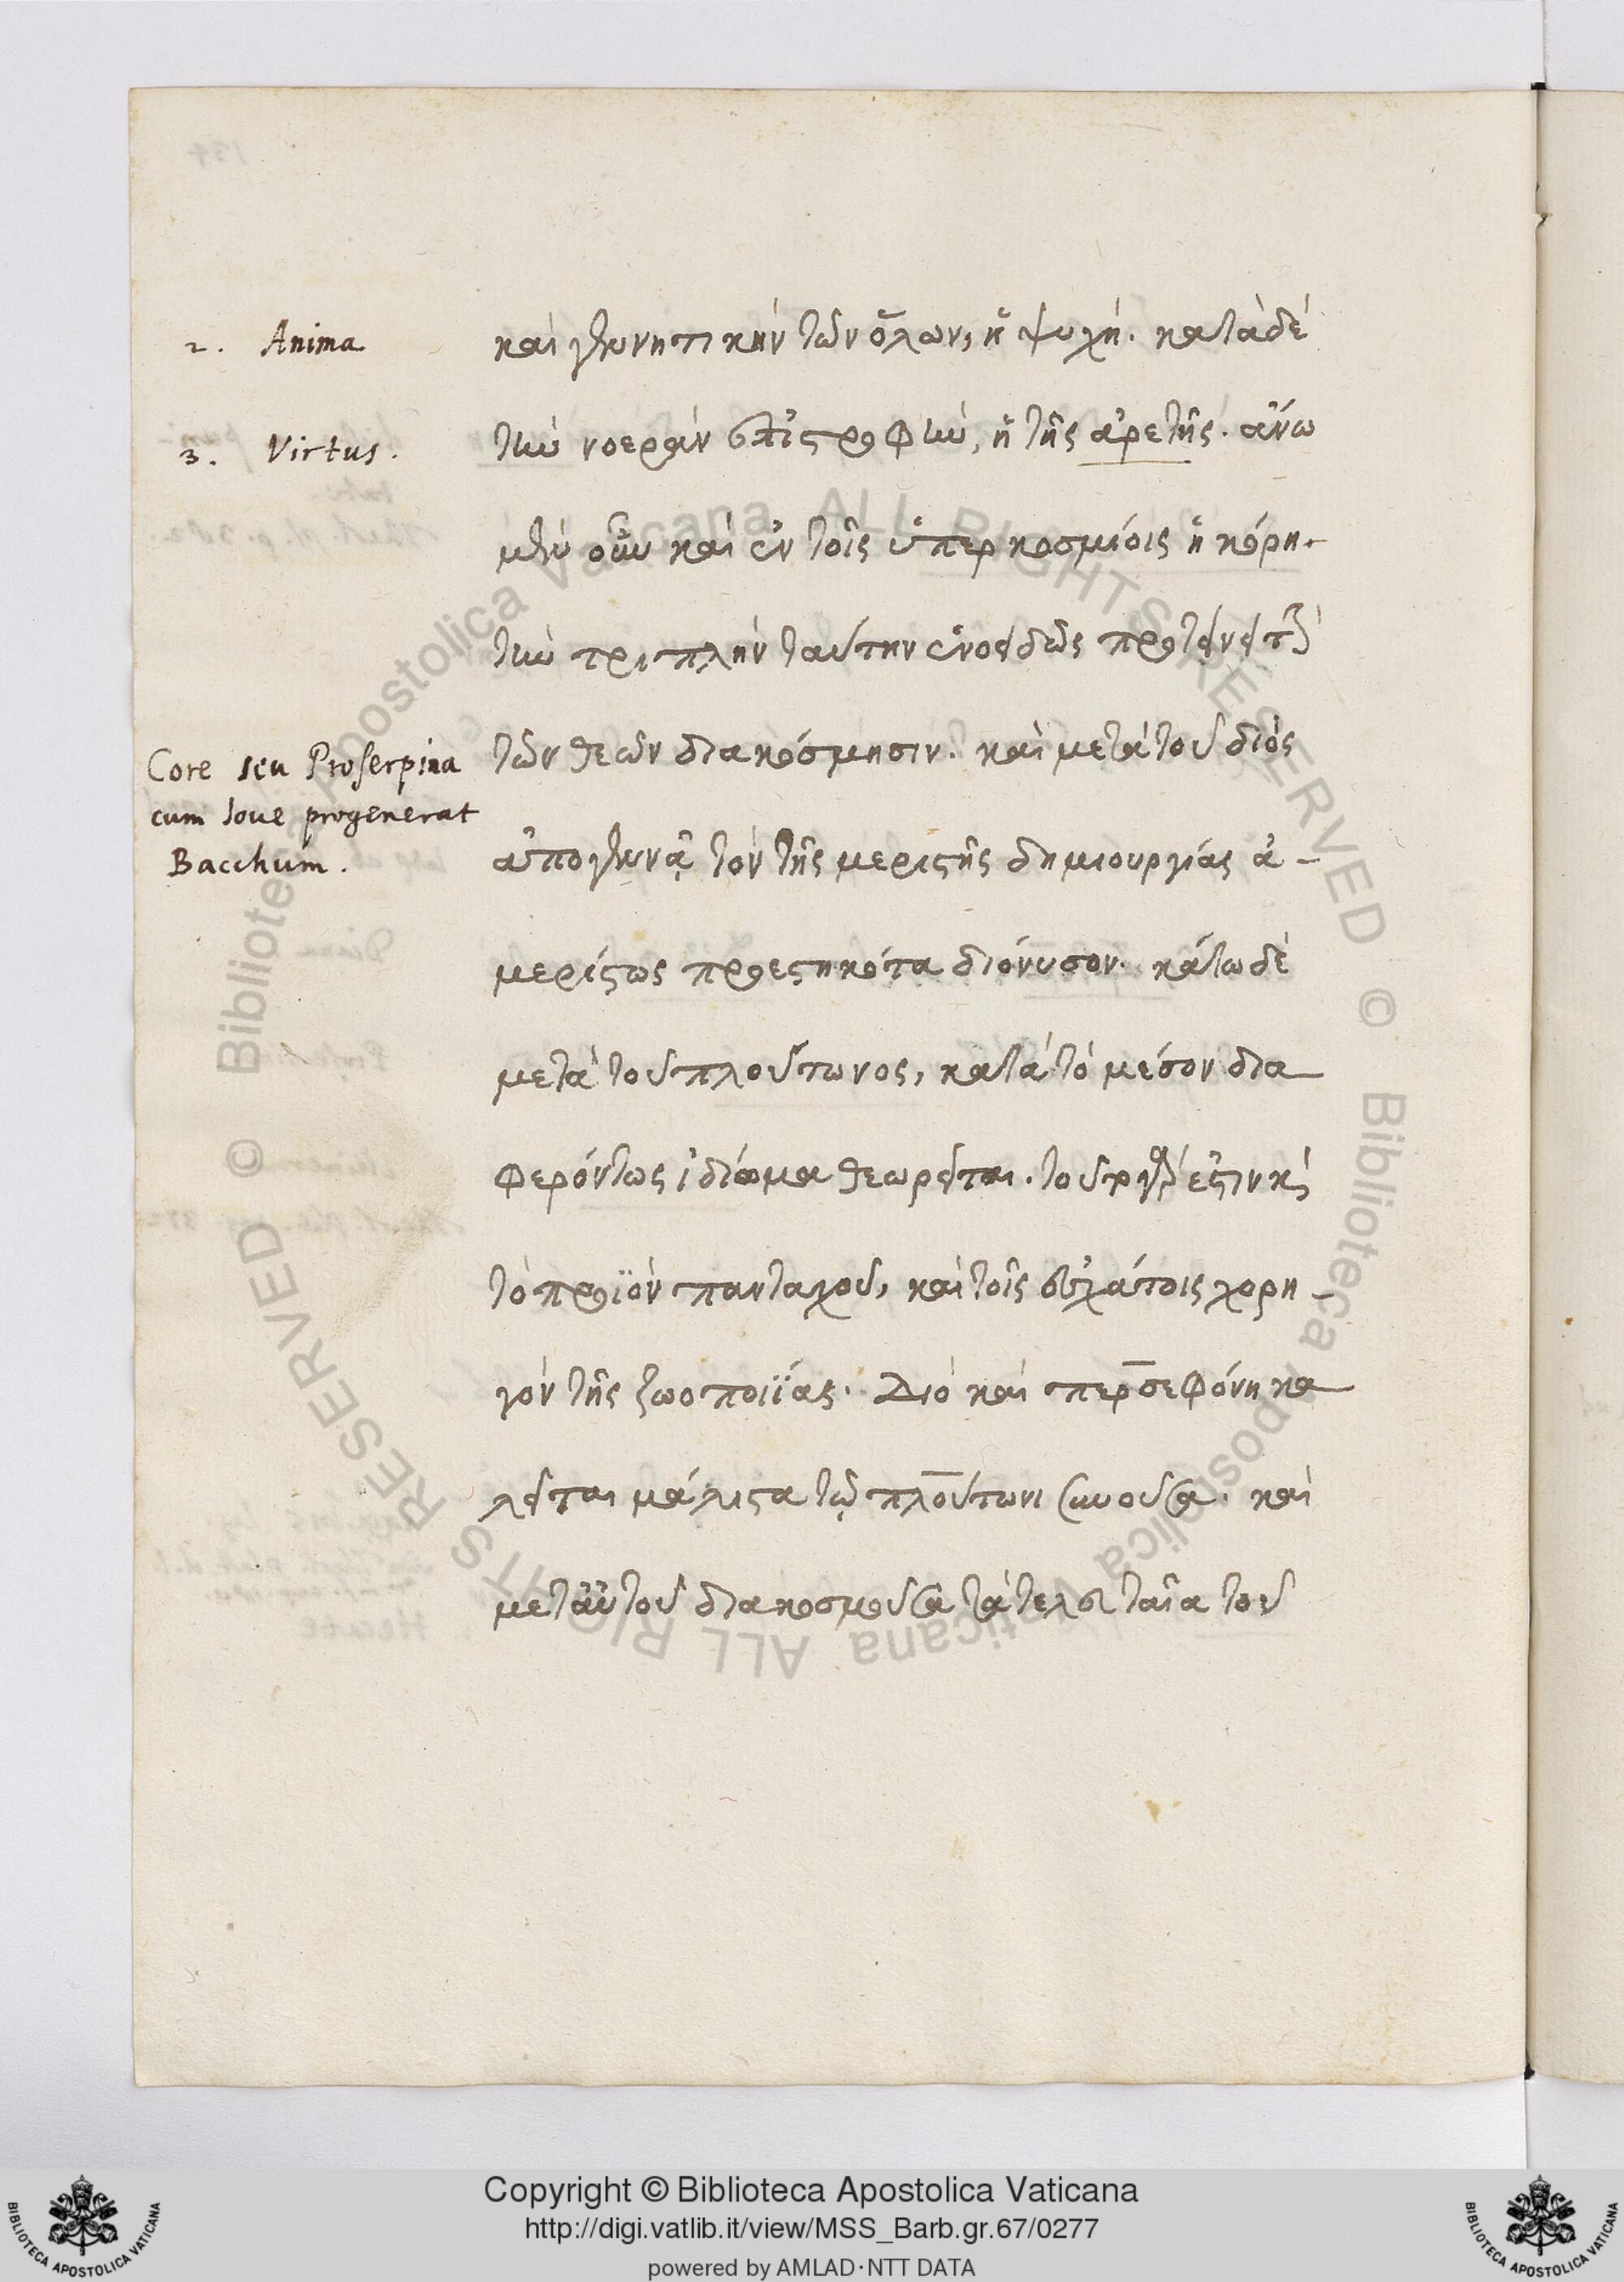 2. Anima
καὶ γεννητικὴν τῶν ὅλων, ἡ ψυχή. κατὰ δὲ
3. Virtus.
τὴν νοερὰν ἐπιστροφὴν, ἡ τῆς ἀρετῆς. ἄνω
μὲν οὖν καὶ ἐν τοῖς ὑπερκοσμίοις ἡ κόρη.
τὴν τριπλὴν ταύτην ἑνοειδῶς προτείνεται
Core seu Proserpina
cum Ioue progenerat
Bacchum.
τῶν θεῶν διακόσμησιν. καὶ μετὰ τοῦ διὸς
ἀπογεννᾷ τὸν τῆς μεριστῆς δημιουργίας ἀ-
μερίστως προεστηκότα διόνυσον. κάτω δὲ
μετὰ τοῦ πλούτωνος, κατὰ τὸ μέσον δια
φερόντως ἰδίωμα θεωρεῖται. τοῦτο γάρ ἐστιν καὶ
τὸ προϊὸν πανταχοῦ, καὶ τοῖς ἐσχάτοις χορη-
γὸν τῆς ζωοποιΐας. Διὸ καὶ περσεφόνη κα
λεῖται μάλιστα τῷ πλούτωνι συνοῦσα. καὶ
μετ' αὐτοῦ διακοσμοῦσα τὰ τελευταῖα τοῦ
Copyright © Biblioteca Apostolica Vaticana
http://digi.vatlib.it/view/MSS_Barb.gr.67/0277
powered by AMLAD·NTT DATA
BIBLIOTECA APOSTOLICA VATICANA
BIBLIOTECA APOSTOLICA VATICANA
© Biblioteca Apostolica Vaticana ALL RIGHTS RESERVED © Biblioteca Apostolica Vaticana ALL RIGHTS RESERVED